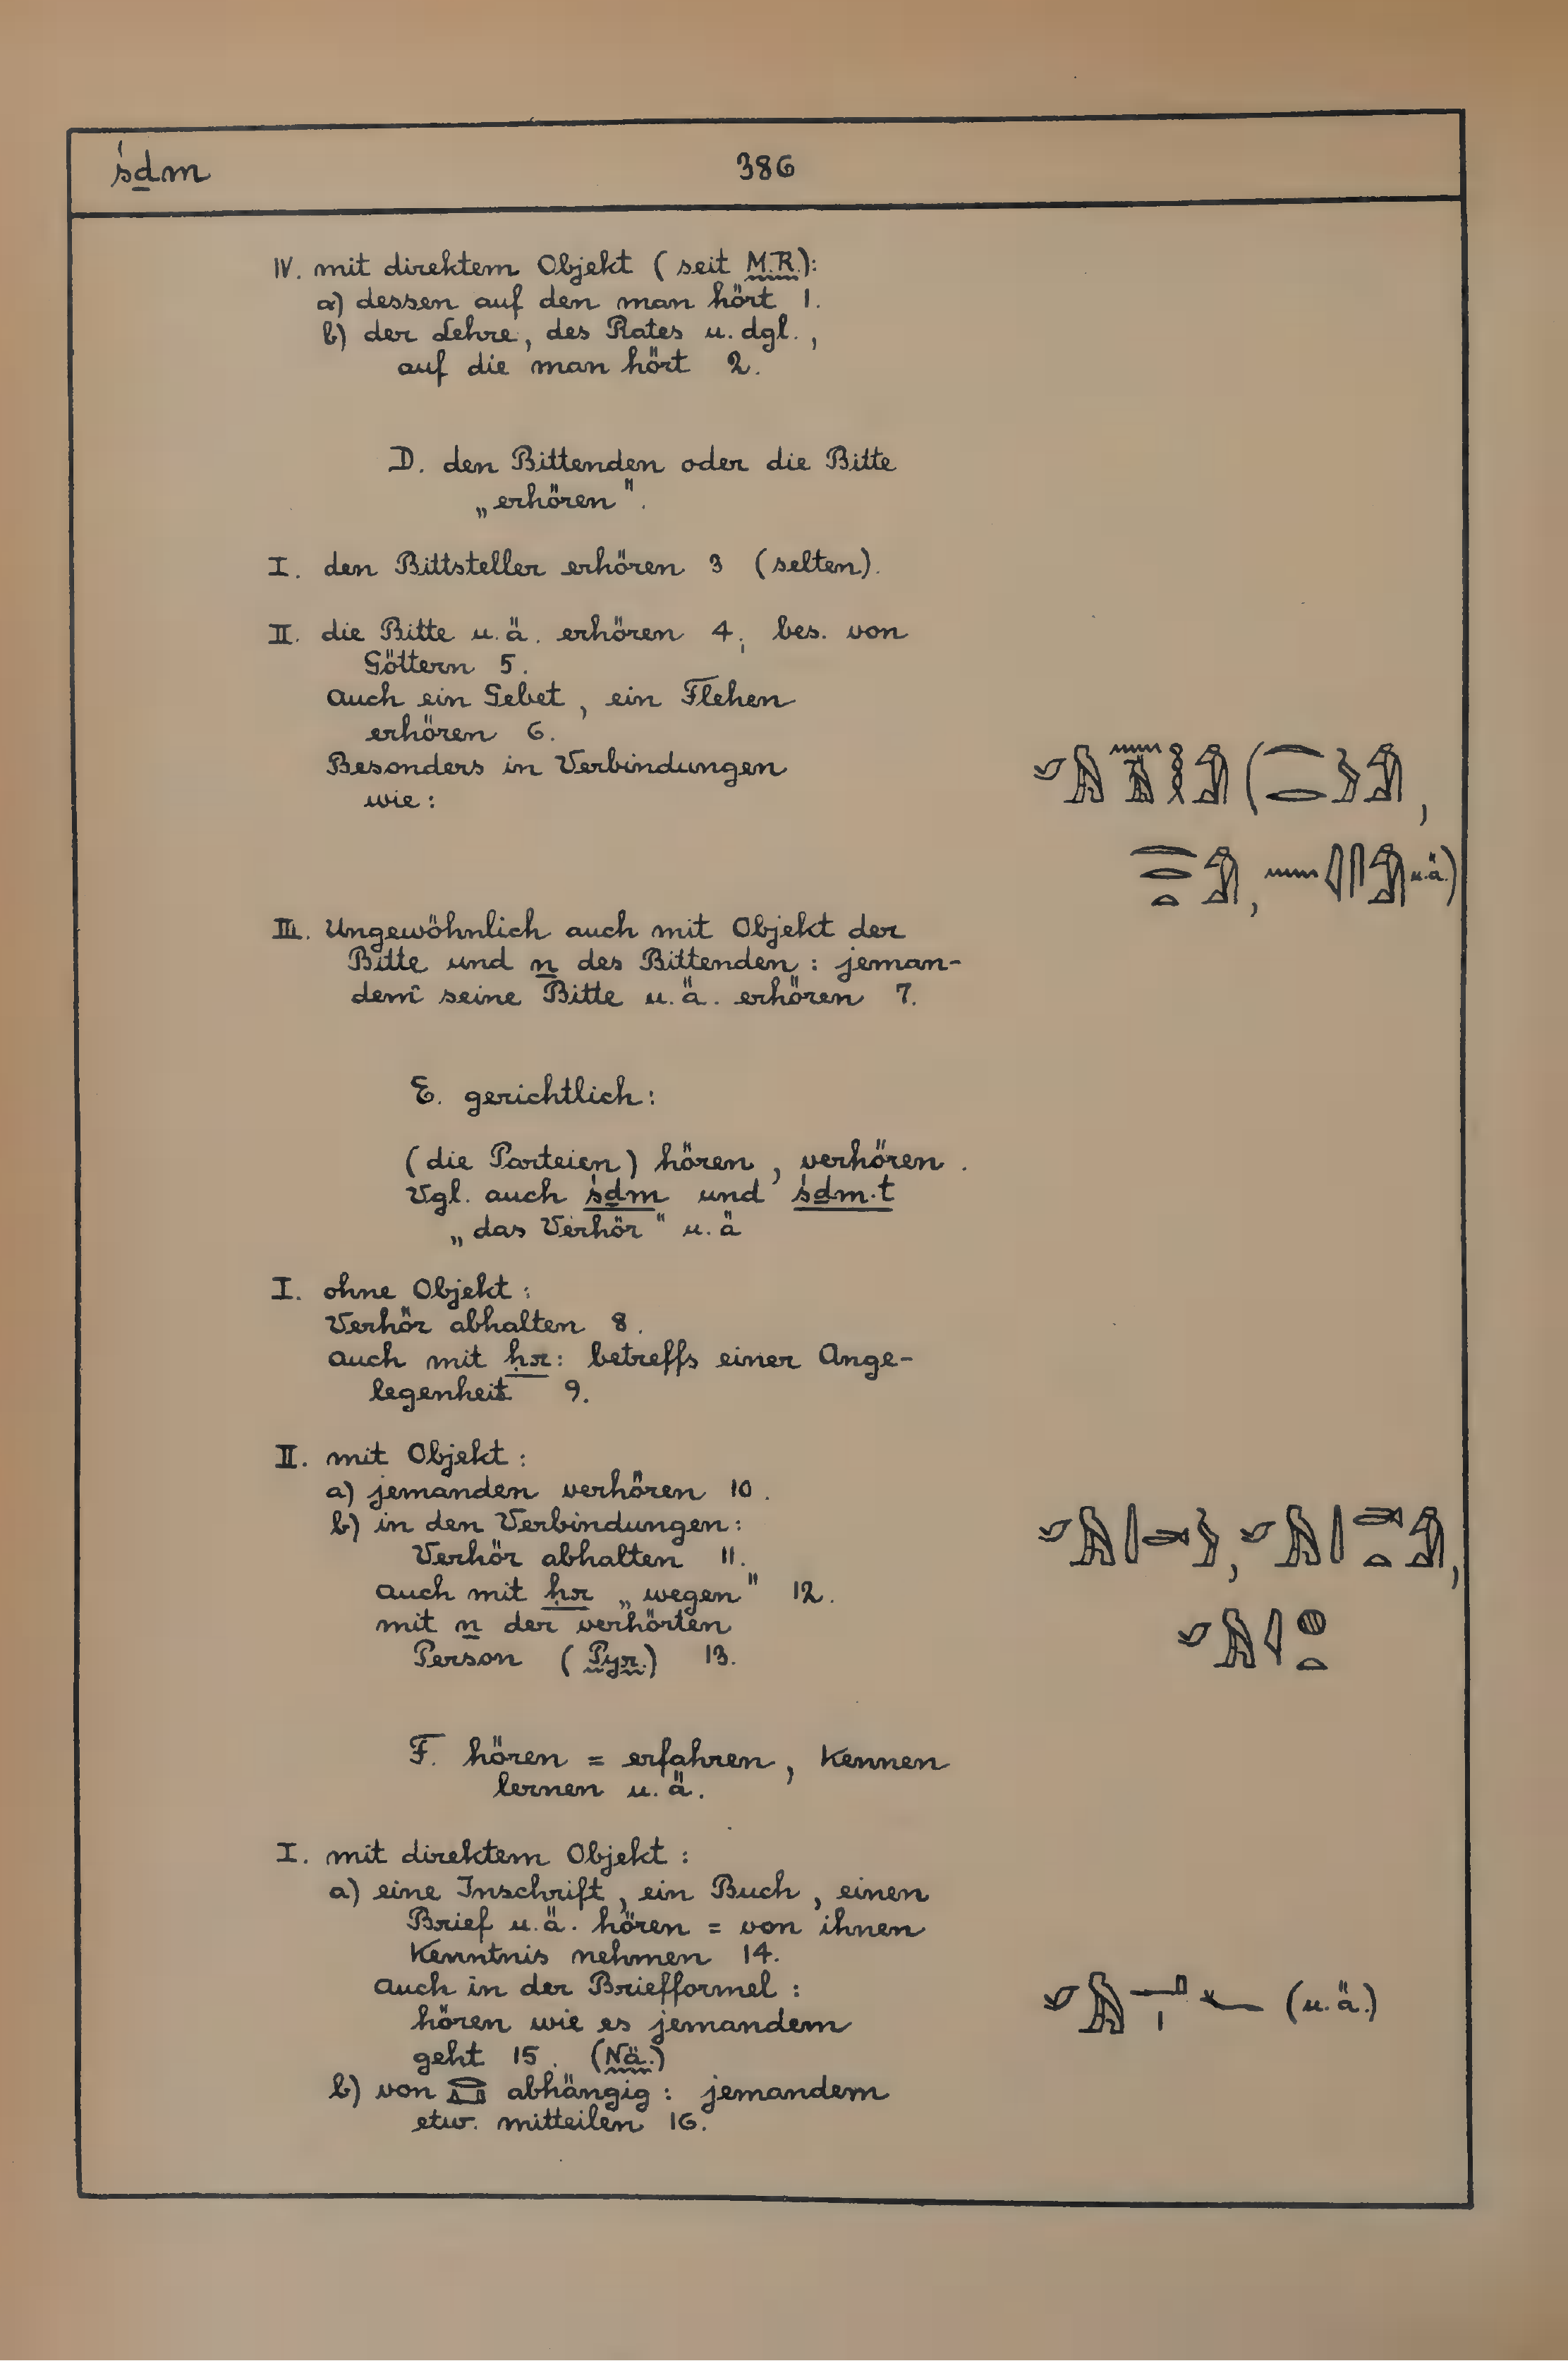 śḏm 386
IV. mit direktem Objekt (seit M.R.):
a) dessen auf den man hört 1.
b) der Lehre, des Rates u. dgl.,
auf die man hört 2.
D. den Bittenden oder die Bitte
„erhören".
I. den Bittsteller erhören 3 (selten).
II. die Bitte u.ä. erhören 4; bes. von
Göttern 5.
auch ein Gebet, ein Flehen
erhören 6.
Besonders in Verbindungen
wie:
u.ä.)
III. Ungewöhnlich auch mit Objekt der
Bitte und n des Bittenden: jeman-
dem seine Bitte u.ä. erhören 7.
E. gerichtlich:
(die Parteien) hören, verhören.
Vgl. auch śḏm und śḏm.t
„das Verhör" u.ä
I. ohne Objekt:
Verhör abhalten 8.
auch mit ḥr: betreffs einer Ange-
legenheit 9.
II. mit Objekt:
a) jemanden verhören 10.
b) in den Verbindungen:
Verhör abhalten 11.
auch mit ḥr „wegen" 12.
mit n der verhörten
Person (Pyr.) 13.
F. hören = erfahren, kennen
lernen u.ä.
I. mit direktem Objekt:
a) eine Inschrift, ein Buch, einen
Brief u.ä. hören = von ihnen
Kenntnis nehmen 14.
auch in der Briefformel: (u.ä.)
hören wie es jemandem
geht 15. (Nä.)
b) von abhängig: jemandem
etw. mitteilen 16.